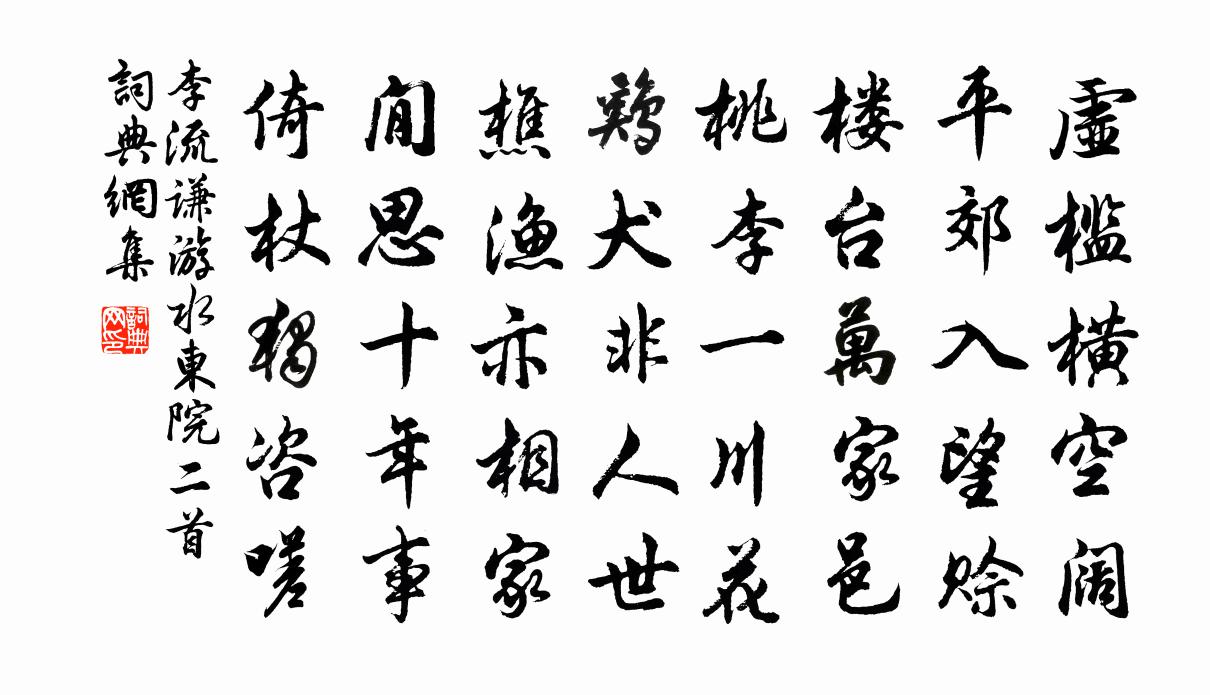 虛檻橫空闊
平郊入望賒
楼台萬家邑
桃李一川花
鷄犬非人世
樵漁亦相家
閒思十年事
倚杖獨咨嗟
李流謙游水東院二首
詞典網集
詞典网印